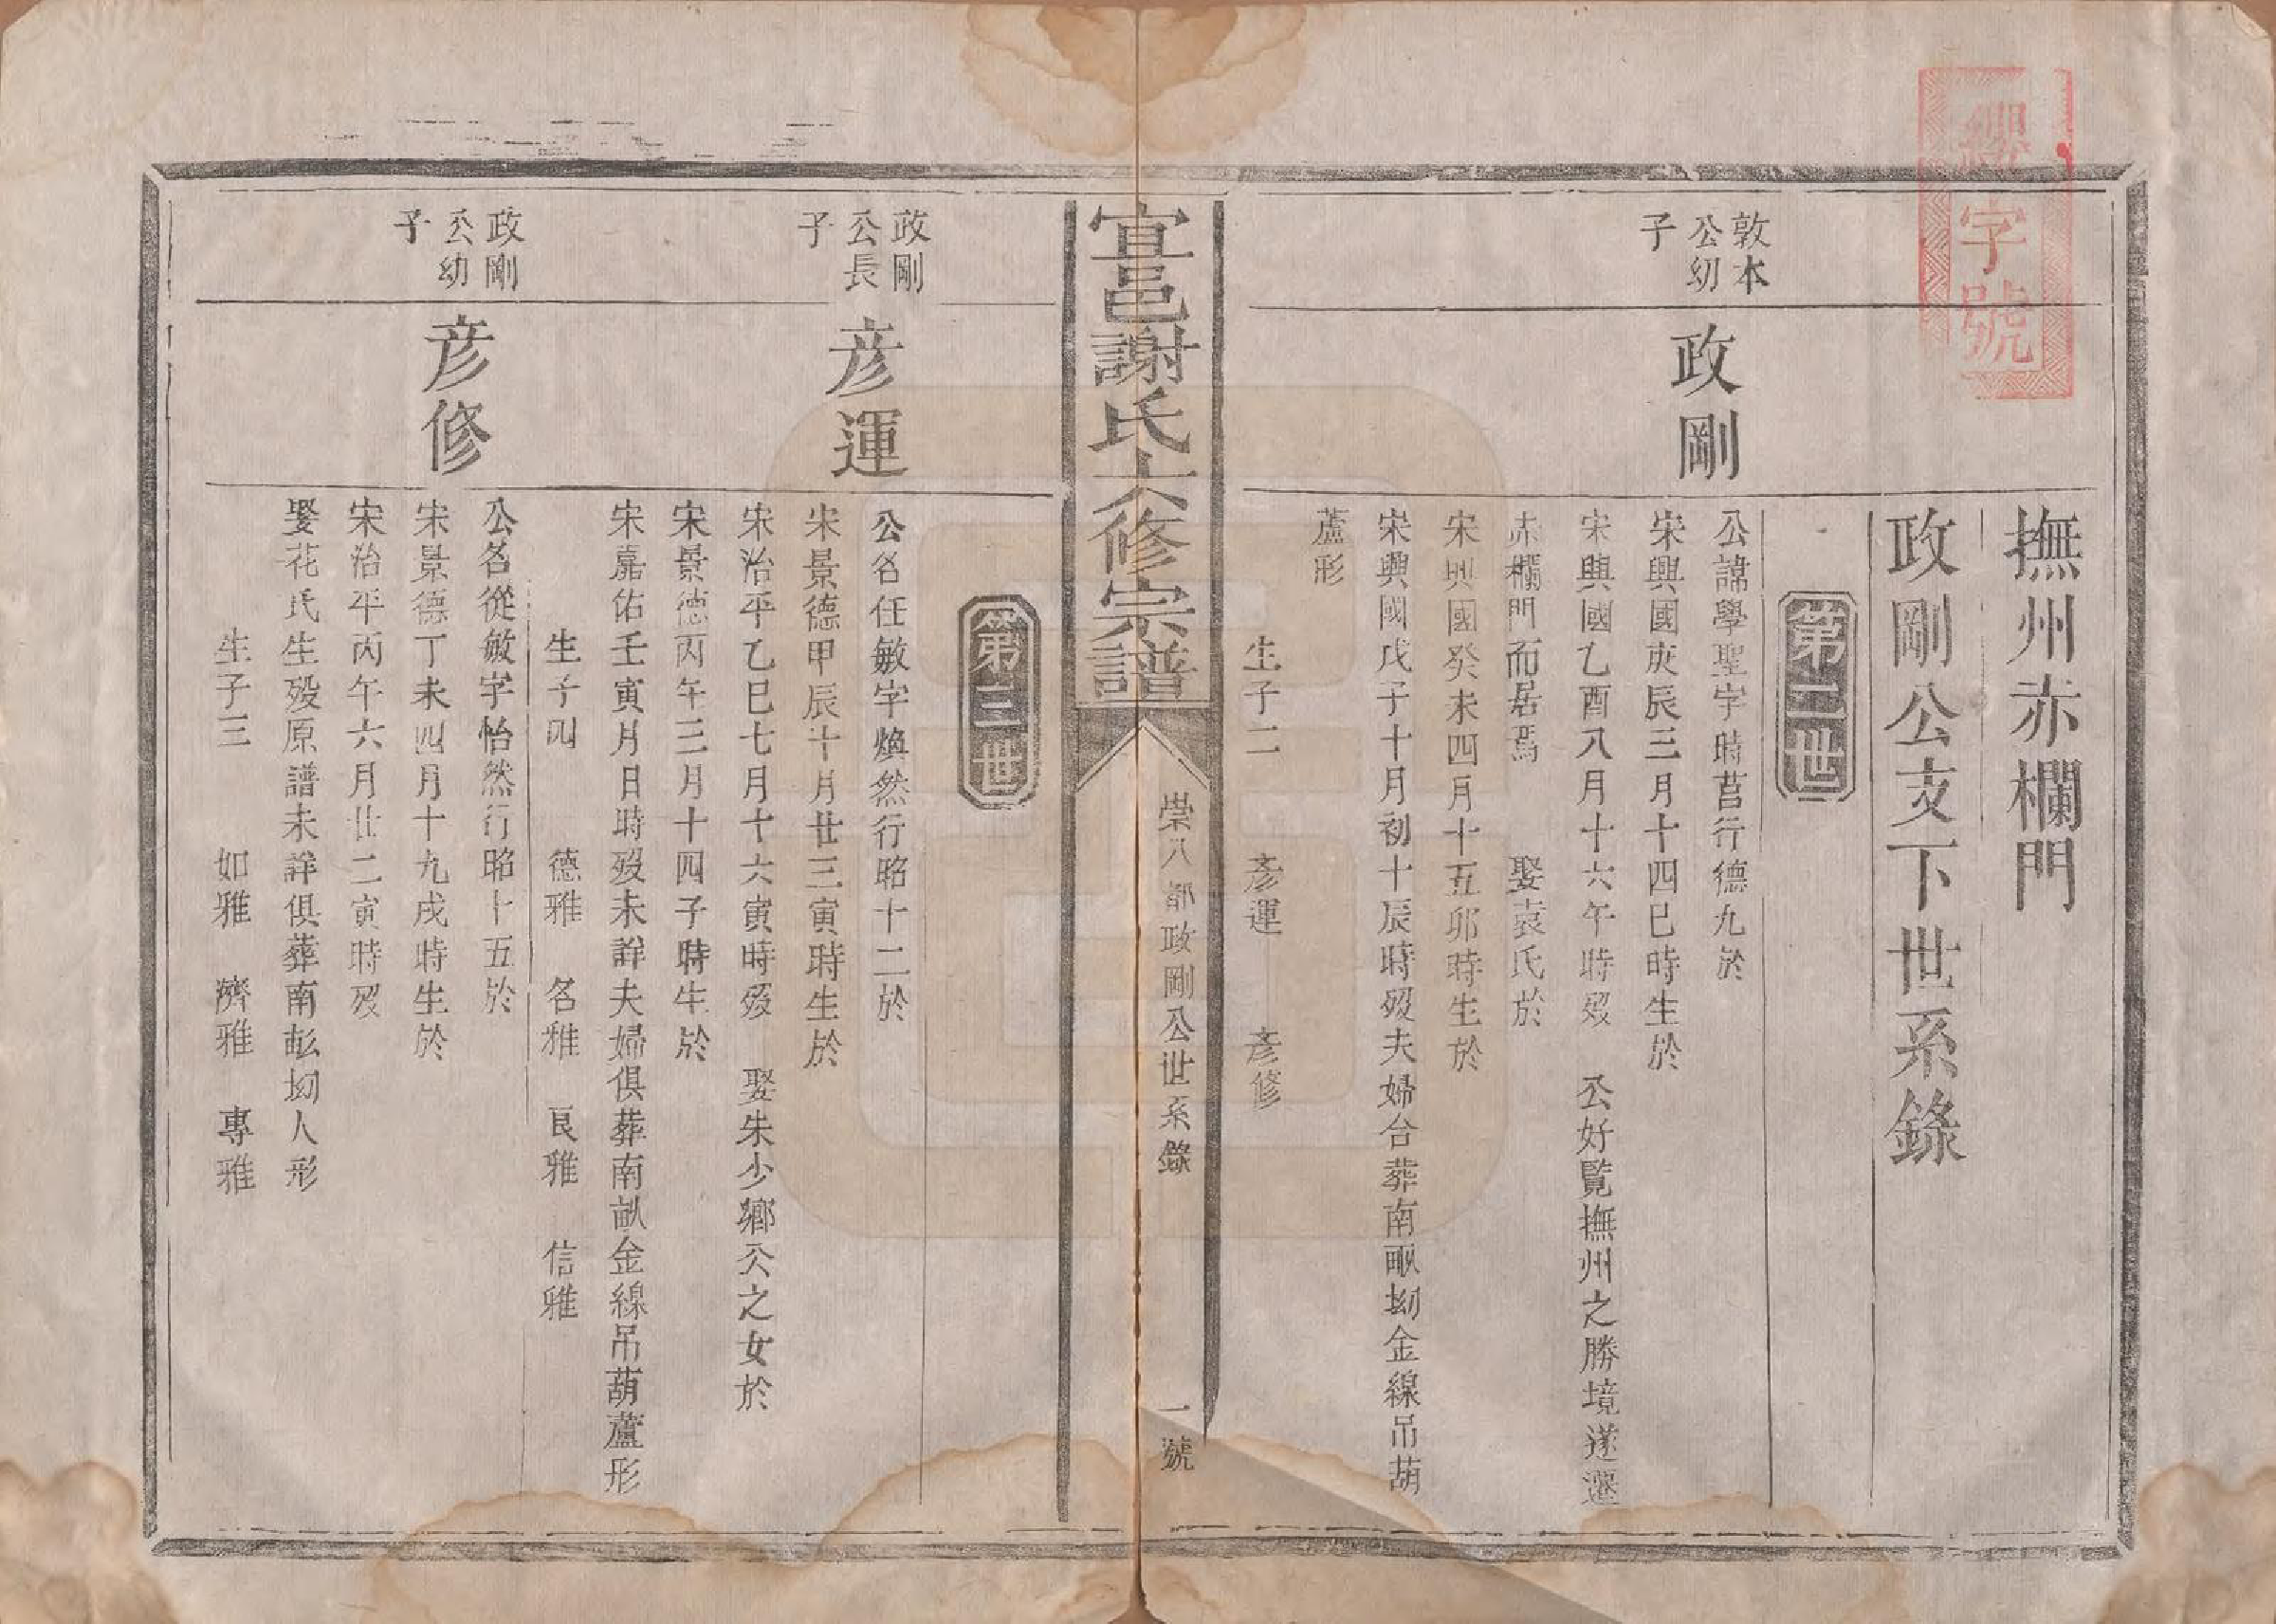 字號
撫州赤欄門
政剛公支下世系錄
第二世
敦本
公幼
子
政剛
公諱學聖字時莒行德九於
宋興國庚辰三月十四巳時生於
宋興國乙酉八月十六午時歿 公好覽撫州之勝境遂遷
赤欄門而居焉 娶袁氏於
宋興國癸未四月十五卯時生於
宋興國戊子十月初十辰時歿夫婦合葬南畝坳金線吊葫
蘆形
生子二 彥運 彥修
宜邑謝氏六修宗譜
崇八都政剛公世系錄
一號
第三世
政剛
公長
子
彥運
公名任敏字煥然行昭十二於
宋景德甲辰十月廿三寅時生於
宋治平乙巳七月十六寅時歿 娶朱少鄉公之女於
宋景德丙午三月十四子時生於
宋嘉佑壬寅月日時歿未詳夫婦俱葬南畝金線吊葫蘆形
生子四 德雅 名雅 良雅 信雅
政剛
公幼
子
彥修
公名從敏字怡然行昭十五於
宋景德丁未四月十九戌時生於
宋治平丙午六月廿二寅時歿
娶花氏生歿原譜未詳俱葬南畝坳人形
生子三 如雅 濟雅 專雅